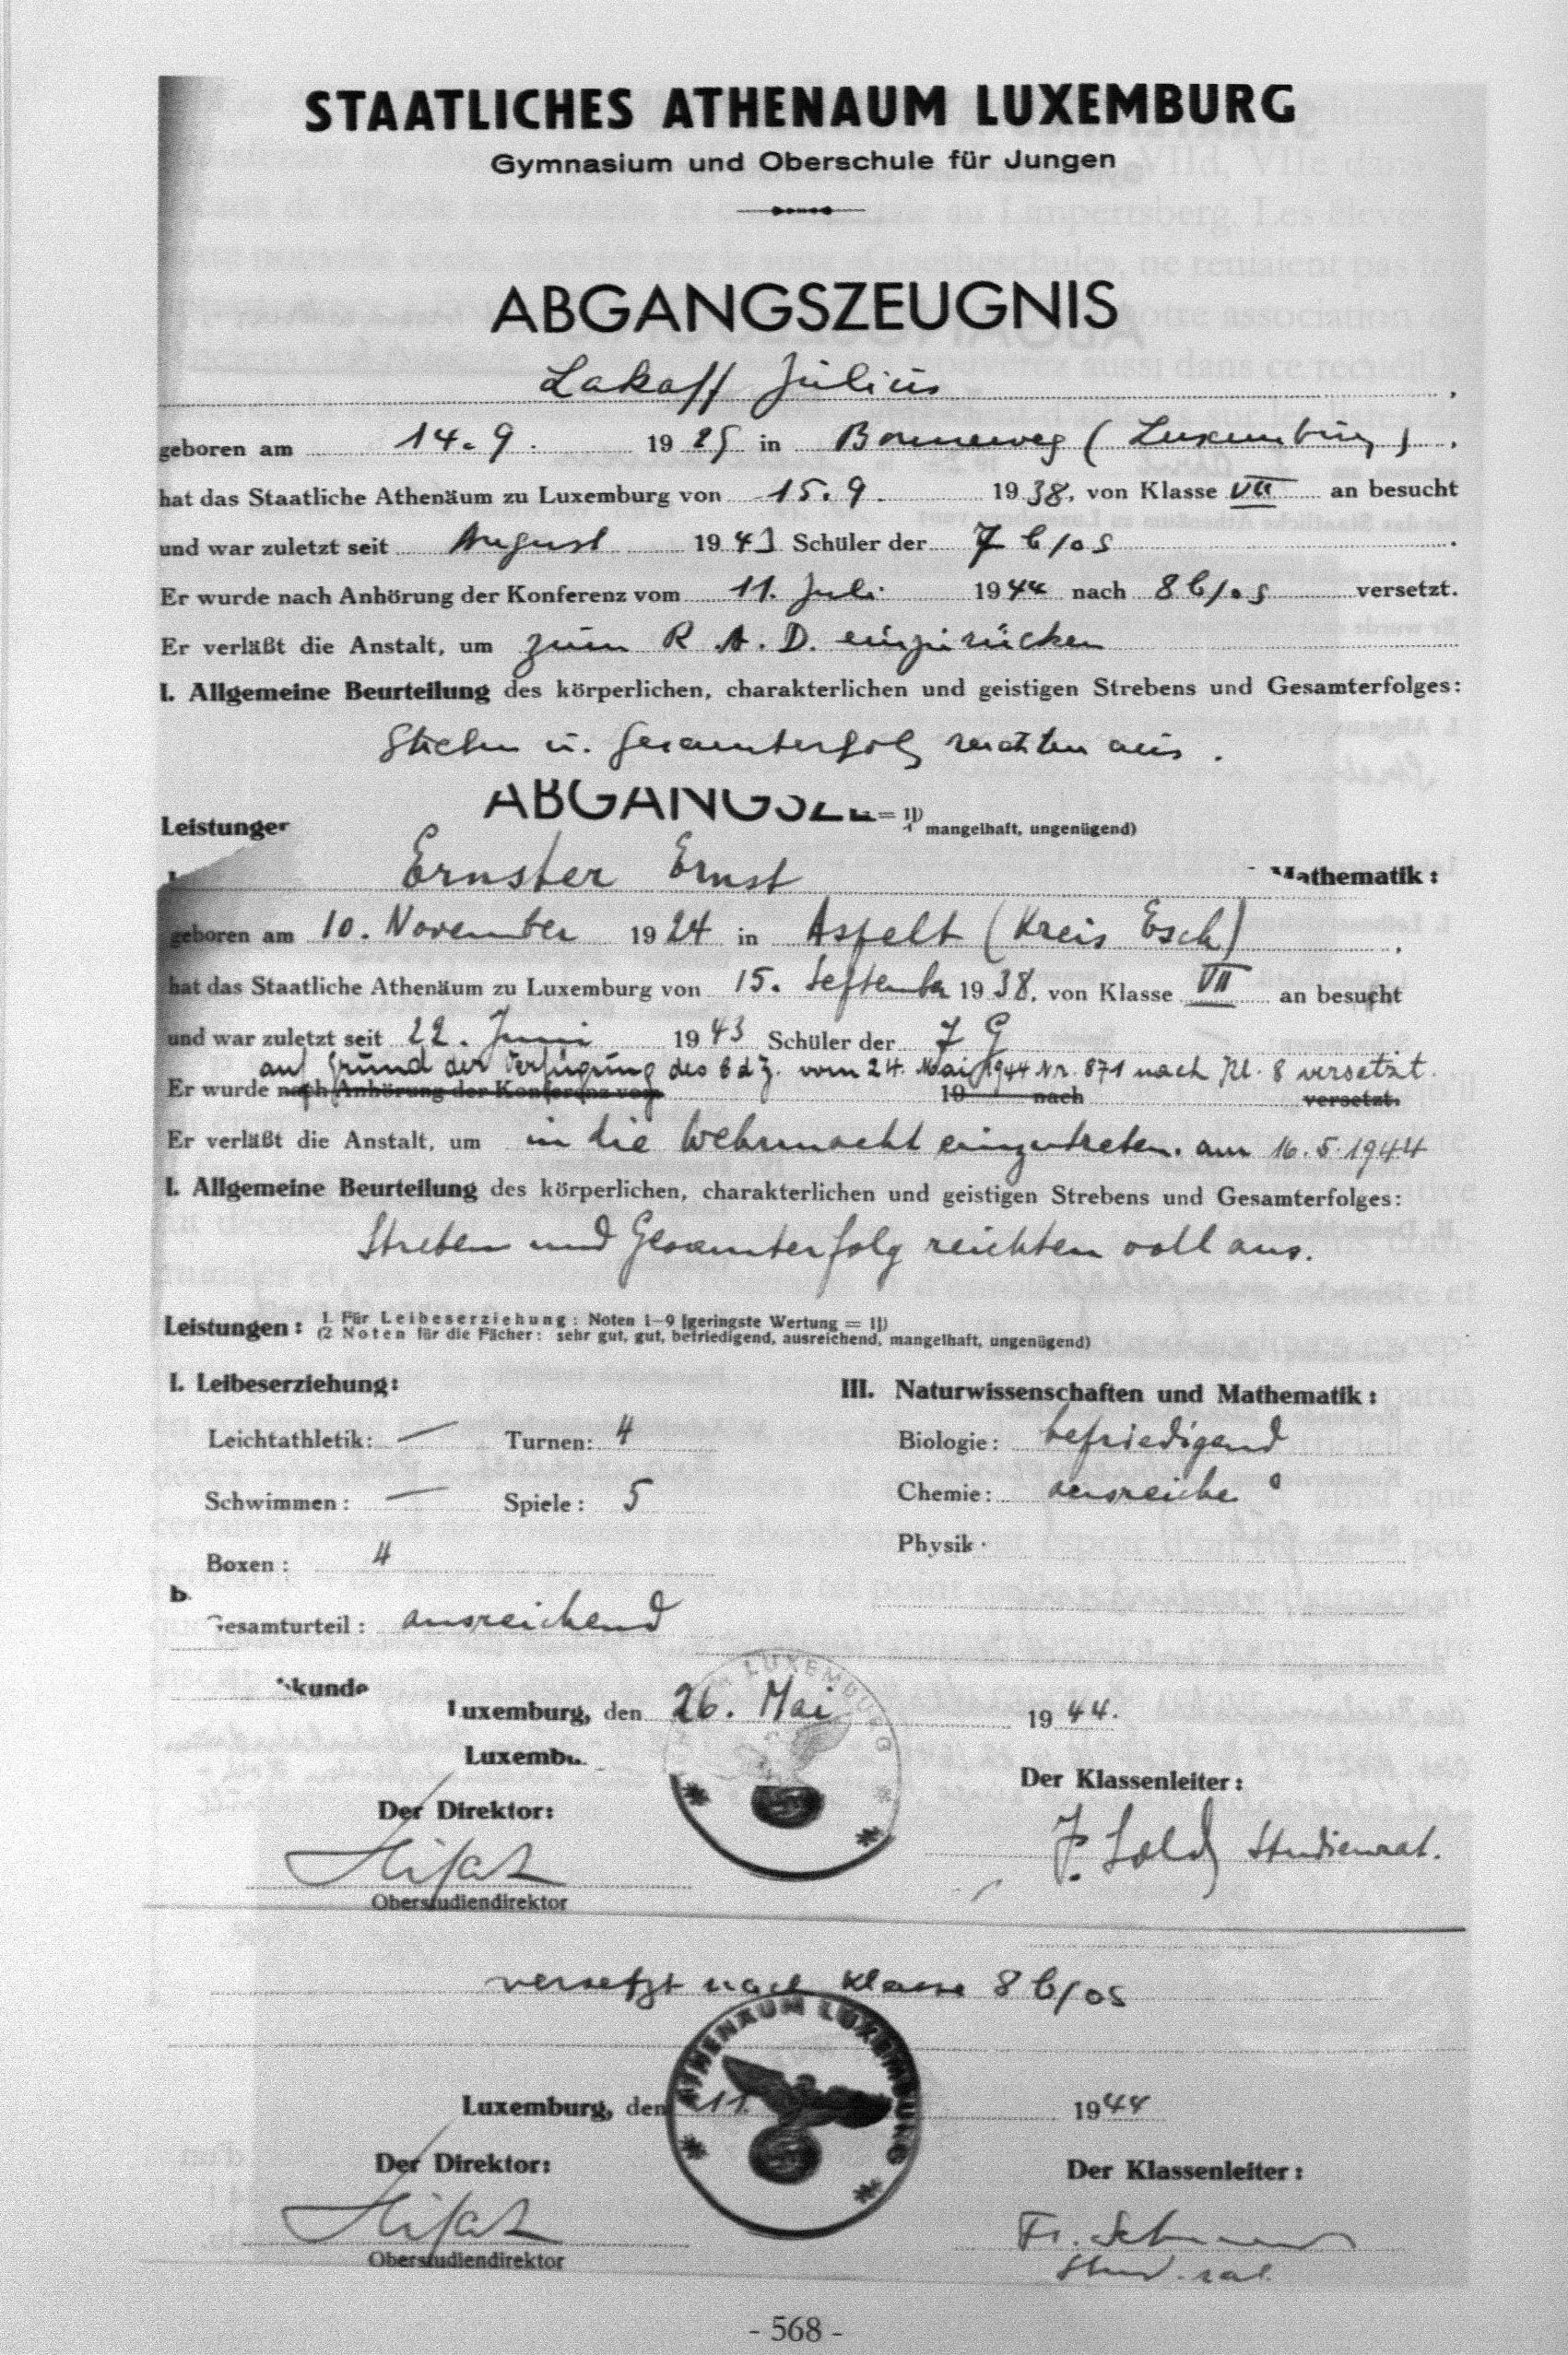 STAATLICHES ATHENAUM LUXEMBURG
Gymnasium und Oberschule für Jungen
ABGANGSZEUGNIS
Lakaff Julius
geboren am 14.9. 1925 in Bonneweg (Luxemburg).
hat das Staatliche Athenäum zu Luxemburg von 15.9. 1938, von Klasse VII an besucht
und war zuletzt seit August 1943 Schüler der 7 b/os.
Er wurde nach Anhörung der Konferenz vom 11. Juli 1944 nach 8 b/os versetzt.
Er verläßt die Anstalt, um zum R.A.D. einzurücken
I. Allgemeine Beurteilung des körperlichen, charakterlichen und geistigen Strebens und Gesamterfolges:
Streben u. Gesamterfolg reichten aus.
ABGANGSZE
Leistungen = 1])
mangelhaft, ungenügend)
Ernster Ernst
Mathematik:
geboren am 10. November 1924 in Aspelt (Kreis Esch).
hat das Staatliche Athenäum zu Luxemburg von 15. September 1938, von Klasse VII an besucht
und war zuletzt seit 22. Juni 1943 Schüler der 7 G
auf Grund der Verfügung des CdZ. vom 24. Mai 1944 Nr. 871 nach Kl. 8 versetzt.
Er wurde nach Anhörung der Konferenz vom 19 nach versetzt.
Er verläßt die Anstalt, um in die Wehrmacht einzutreten. am 16.5.1944
I. Allgemeine Beurteilung des körperlichen, charakterlichen und geistigen Strebens und Gesamterfolges:
Streben und Gesamterfolg reichten voll aus.
Leistungen: 1. Für Leibeserziehung: Noten 1–9 [geringste Wertung = 1])
(2 Noten für die Fächer: sehr gut, gut, befriedigend, ausreichend, mangelhaft, ungenügend)
I. Leibeserziehung:
III. Naturwissenschaften und Mathematik:
Leichtathletik: — Turnen: 4
Biologie: befriedigend
Schwimmen: — Spiele: 5
Chemie: ausreichend
Boxen: 4
Physik
b
Gesamturteil: ausreichend
kunde
LUXEMBURG
Luxemburg, den 26. Mai 1944.
Luxembu
Der Direktor:
Der Klassenleiter:
Studienrat.
Oberstudiendirektor
versetzt nach Klasse 8 b/os
ATHENAUM LUXEMBURG
Luxemburg, den 11. 1944
Der Direktor:
Der Klassenleiter:
Oberstudiendirektor
Stud. rat
- 568 -